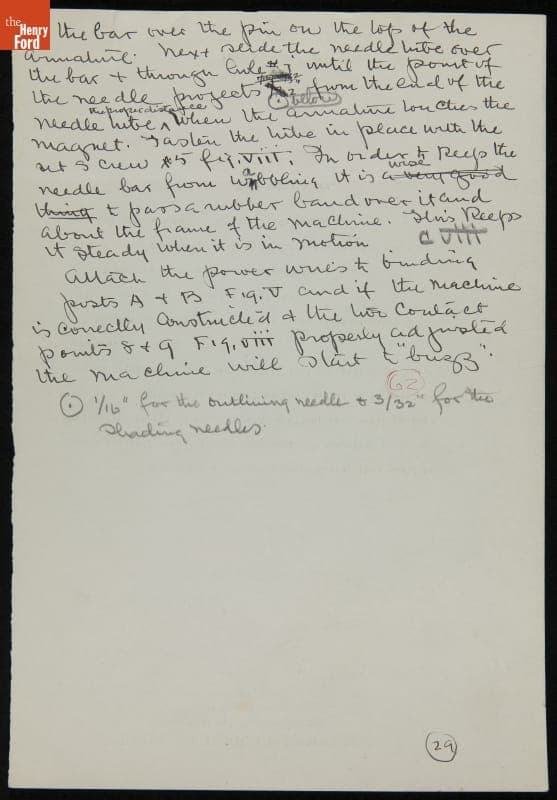 the Henry Ford
the bar over the pin on the top of the
armature. Next slide the needle tube over
the bar & through tube #7 until the point of
the needle projects from the end of the
⊙ below
the proper distance
needle tube, when the armature touches the
magnet. Fasten the tube in place with the
set screw #5 fig. VIII. In order to keep the
wise
needle bar from wabbling it is a very good
thing to pass a rubber band over it and
about the frame of the machine. This keeps
it steady when it is in motion
C VIII
Attach the power wires to binding
posts A & B Fig. V and if the machine
is correctly constructed & the two contact
points 8 & 9 Fig. VIII properly adjusted
the machine will start to "buzz".
62
⊙ 1/16" for the outlining needle & 3/32" for the
shading needles.
29